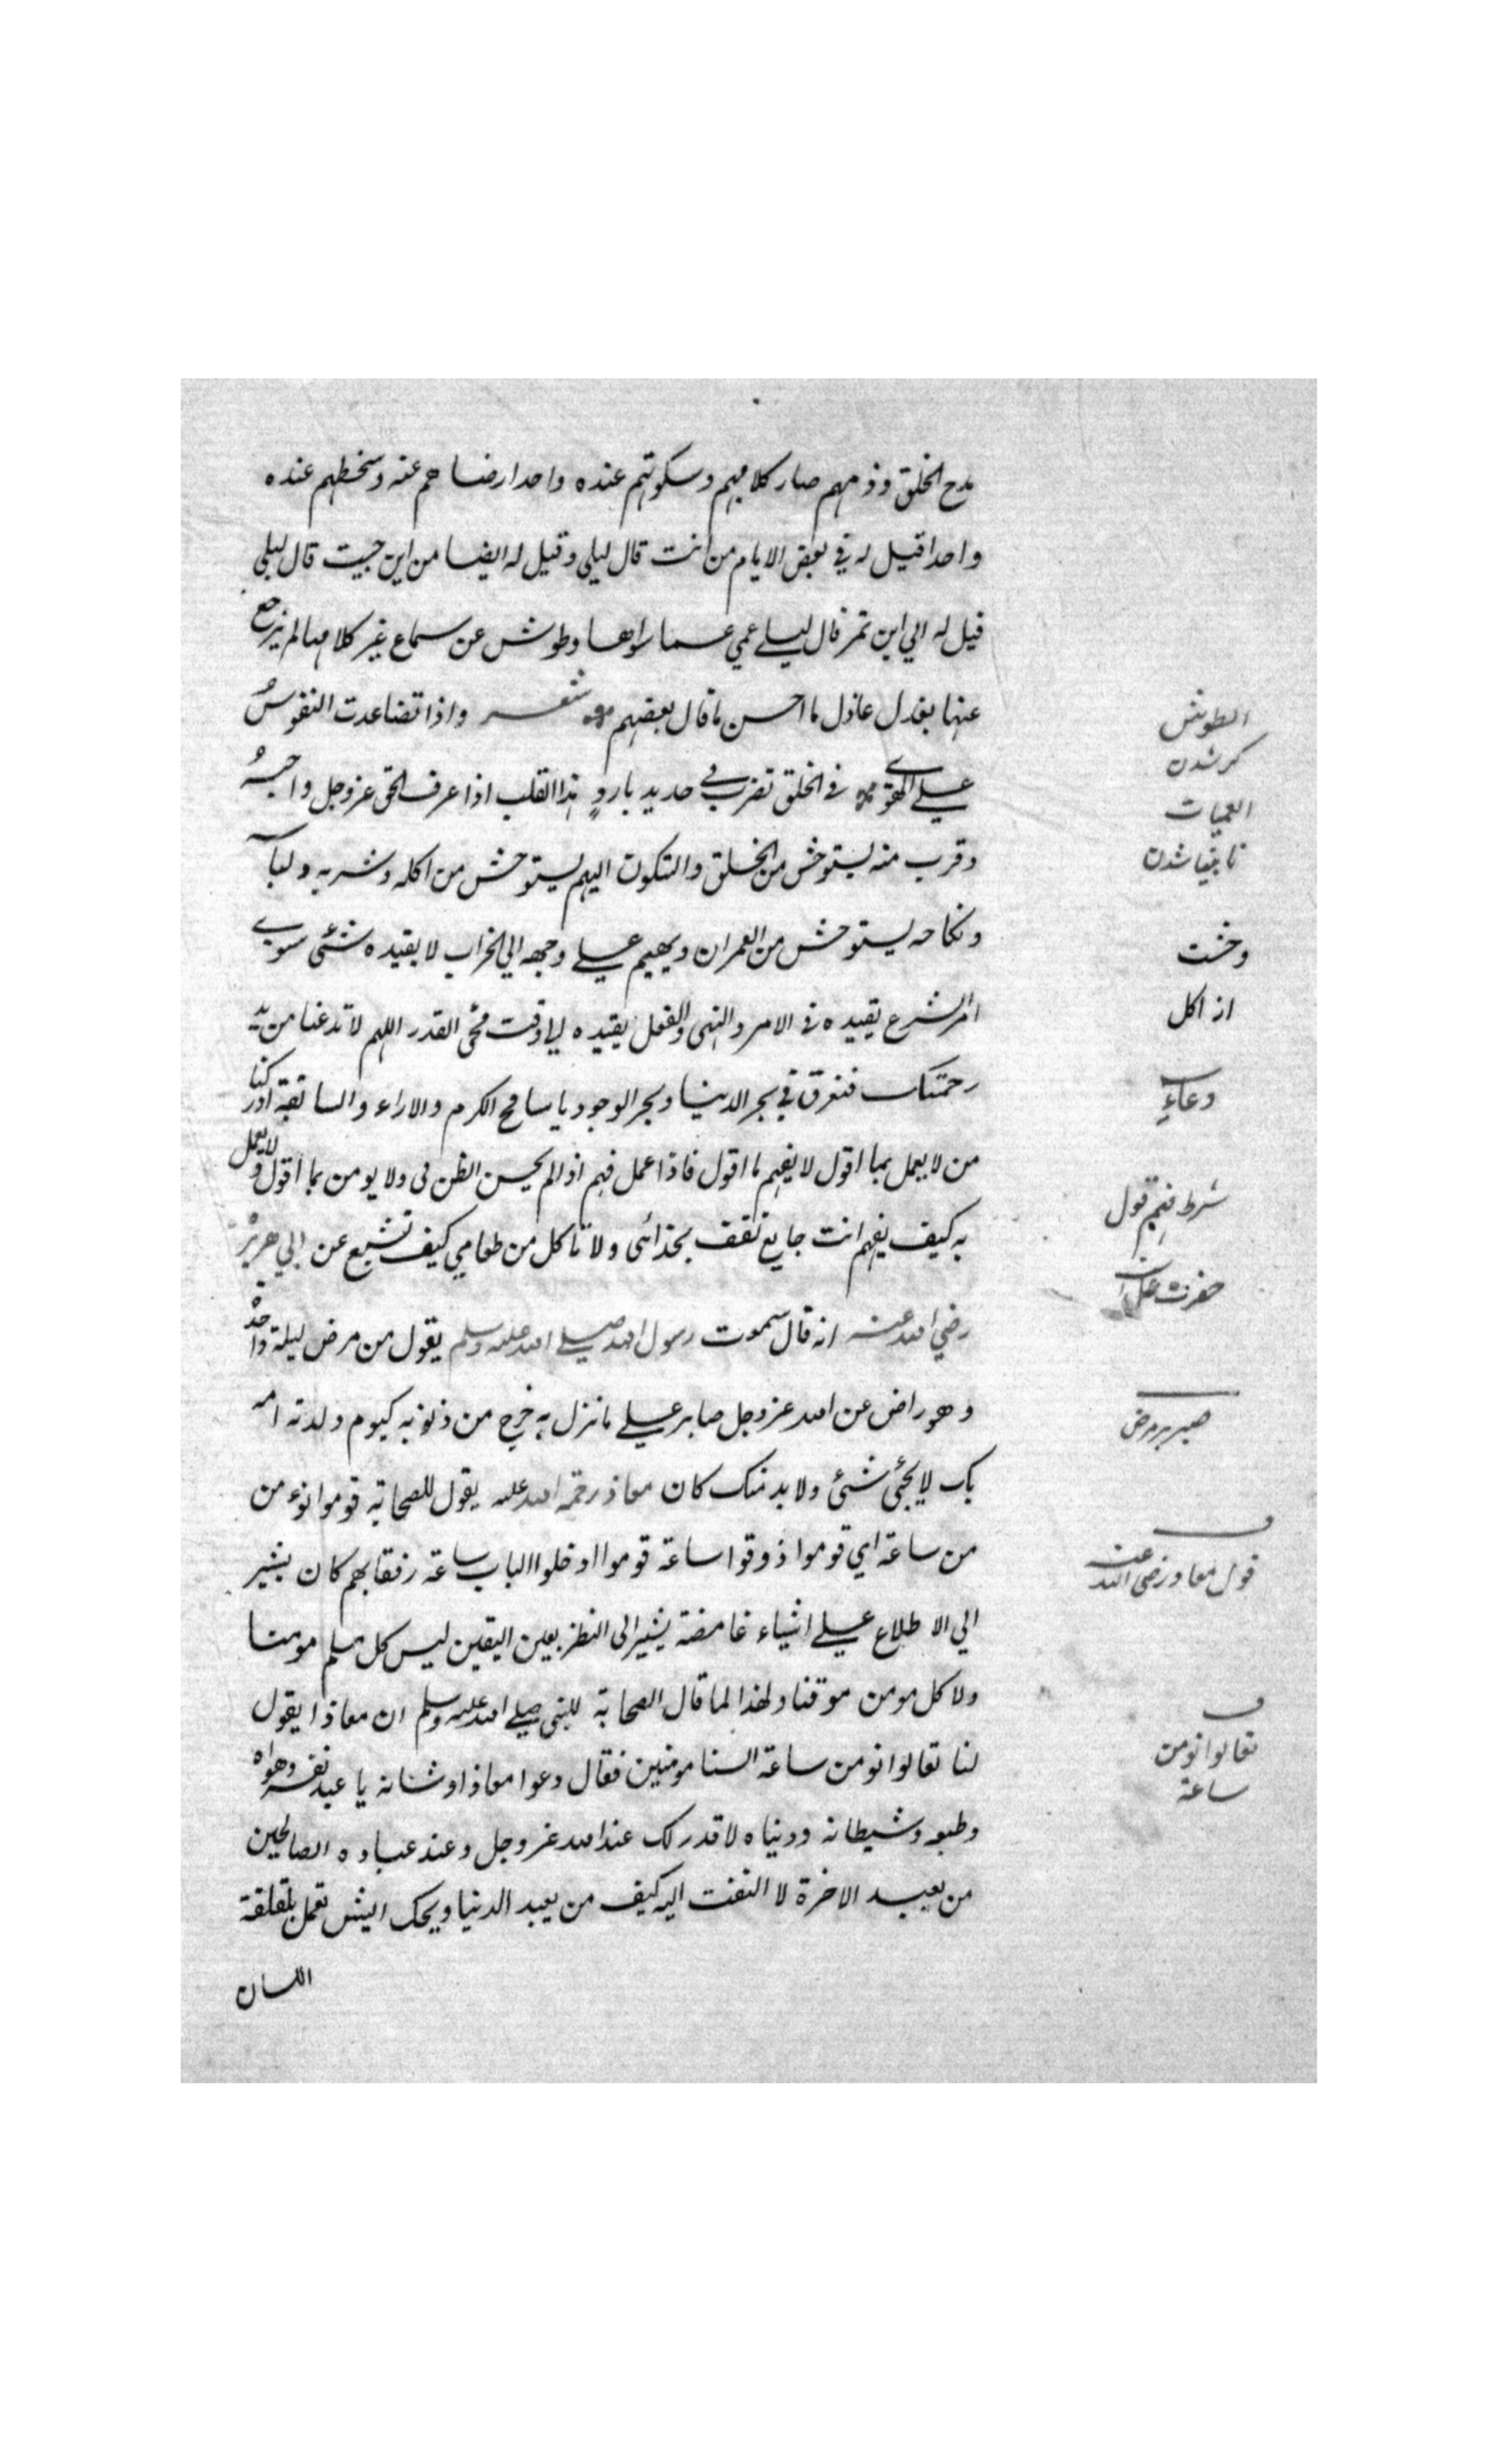 مدح الخلق وذمهم صار كلامهم وسكوتهم عنده واحدا رضاهم عنه وسخطهم عنده
واحدا قيل له في بعض الايام من انت قال ليلى وقيل له ايضا من اين جيت قال ليلى
قيل له الي اين تمر قال ليلے عمي عما سواها وطوش عن سماع غير كلامها لم يرجع
عنها بعذل عاذل ما احسن ما قال بعضهم شعر واذا تضاعدت النفوس
علے الهوے في الخلق تضرب في حديد بارد هذا القلب اذا عرف الحق عز وجل واحبه
وقرب منه يستوحش من الخلق والسكون اليهم يستوحش من اكله وشربه ولبا
ونكاحه يستوحش من العمران ويهيم علے وجهه الي الخراب لا يقيده شئى سوے
امر الشرع يقيده في الامر والنهى والفعل يقيده الي وقت مجئ القدر اللهم لا تدعنا من يد
رحمتك فنغرق في بحر الدنيا وبحر الوجود يا سامح الكرم والاراء والسابقة ادركنا
من لا يعمل بما اقول لا يفهم ما اقول فاذا عمل فهم اذا لم يحسن الظن لى ولا يومن بما اقول ولا يعمل
به كيف يفهم انت جايع تقف بحذائى ولا تاكل من طعامي كيف تشبع عن ابي هريرة
رضي الله عنه انه قال سمعت رسول الله صلے الله عليه وسلم يقول من مرض ليلة واحدة
وهو راض عن الله عز وجل صابر علے ما نزل به خرج من ذنوبه كيوم ولدته امه
بك لا يجئى شئى ولا بد منك كان معاذ رحمة الله عليه يقول للصحابة قوموا نوء من
من ساعة اي قوموا ذوقوا ساعة قوموا ادخلوا الباب ساعة رفقا بهم كان يشير
الي الاطلاع علے اشياء غامضة يشير الى النظر بعين اليقين ليس كل مسلم مومنا
ولا كل مومن موقنا ولهذا لما قال الصحابة للنبى صلے الله عليه وسلم ان معاذا يقول
لنا تعالوا نومن ساعة السنا مومنين فقال دعوا معاذا وشانه يا عبد نفسه وهواه
وطبعه وشيطانه ودنياه لا قدر لك عند الله عز وجل وعند عباده الصالحين
من يعبد الاخرة لا التفت اليه كيف من يعبد الدنيا ويحك ايش تعمل بلقلقة
اللسان
الطوش
كر شدن
العميات
نابينا شدن
وحشت
از اكل
دعاے
شرط فهم قول
صبر بر مرض
قول معاذ رضى الله عنه
تعالوا نومن
ساعة